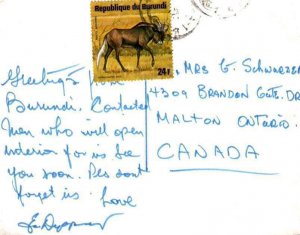 République du Burundi
24F
MRS G. SCHWARZER
4309 BRANDON GATE DR
MALTON ONTARIO.
CANADA
Greetings from
Burundi. Contacted
man who will open
interior for us See
you soon. Pls dont
forget us. Love